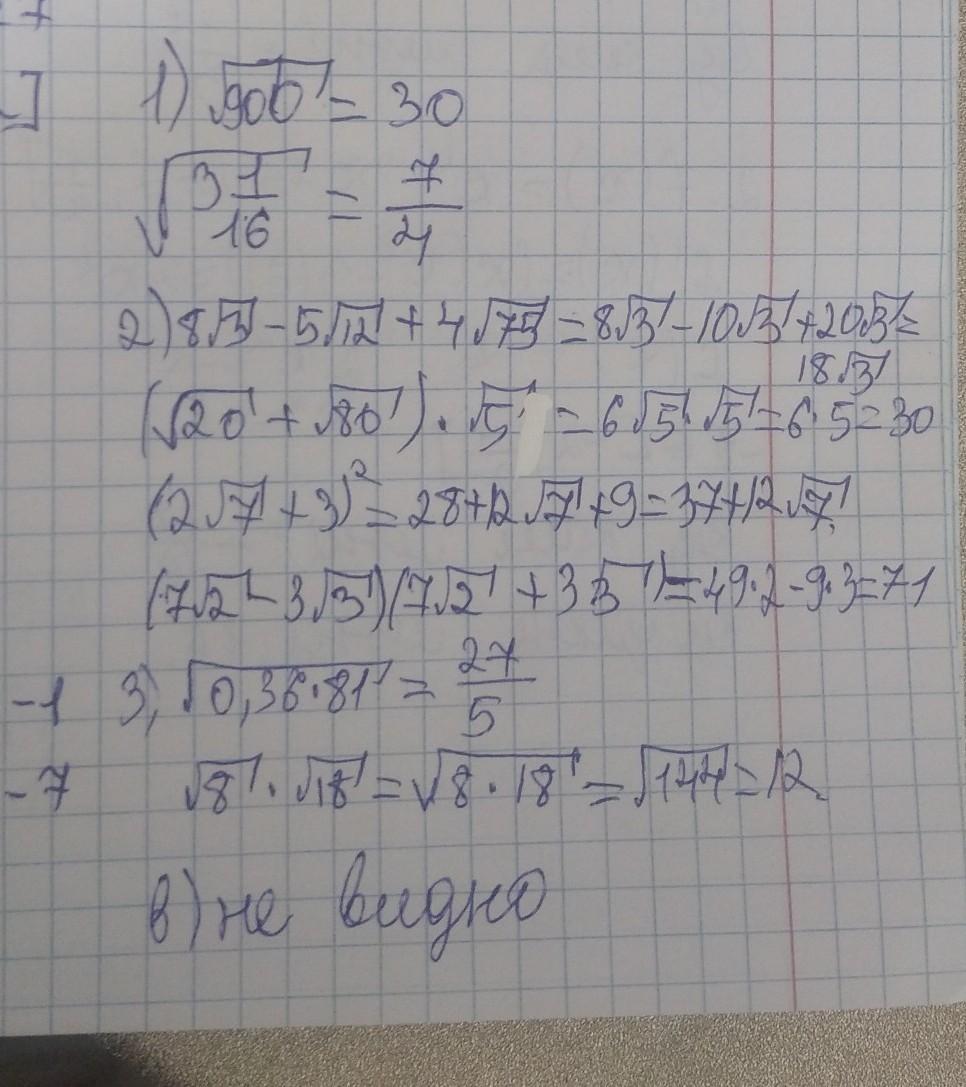 1) √900 = 30
√(3 1/16) = 7/4
2) 8√3 - 5√12 + 4√75 = 8√3 - 10√3 + 20√3 =
18√3
(√20 + √80) · √5 = 6√5 · √5 = 6 · 5 = 30
(2√7 + 3)² = 28 + 12√7 + 9 = 37 + 12√7
(7√2 - 3√3)(7√2 + 3√3) = 49·2 - 9·3 = 71
-1 3) √(0,36·81) = 27/5
-7 √8 · √18 = √(8 · 18) = √144 = 12
в) не видно